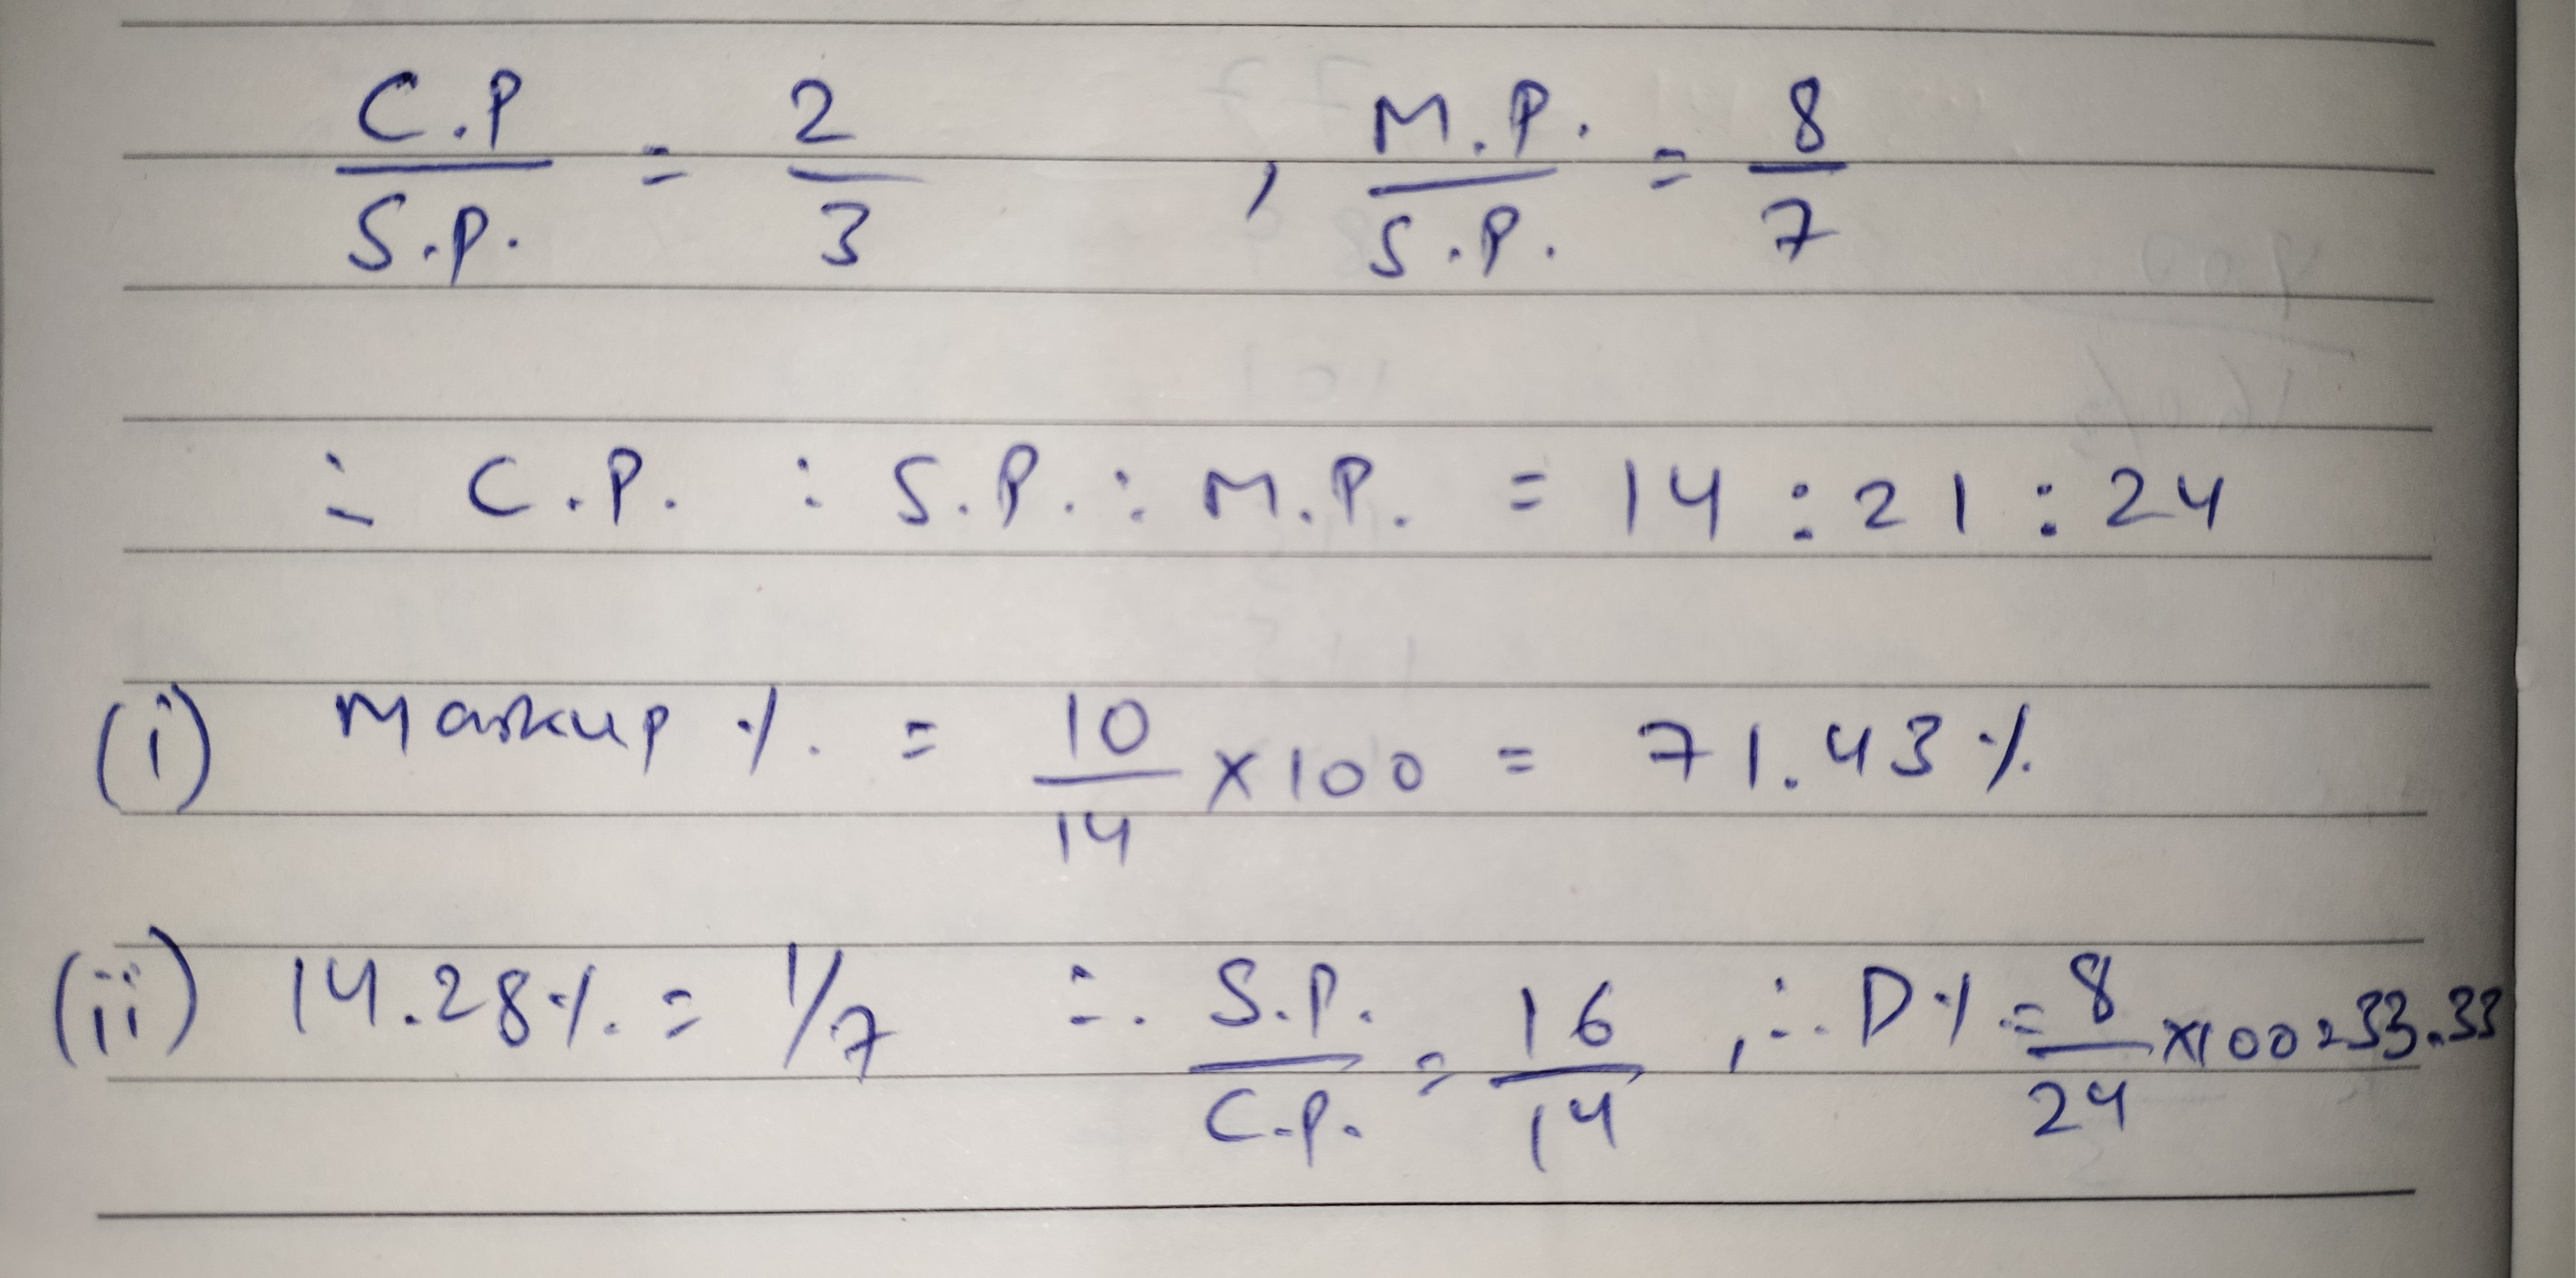 C.P / S.P. = 2/3 , M.P. / S.P. = 8/7
∴ C.P. : S.P. : M.P. = 14 : 21 : 24
(i) Markup % = 10/14 × 100 = 71.43 %
(ii) 14.28 % = 1/7 ∴ S.P. / C.P. = 16/14 , ∴ D % = 8/24 × 100 = 33.33